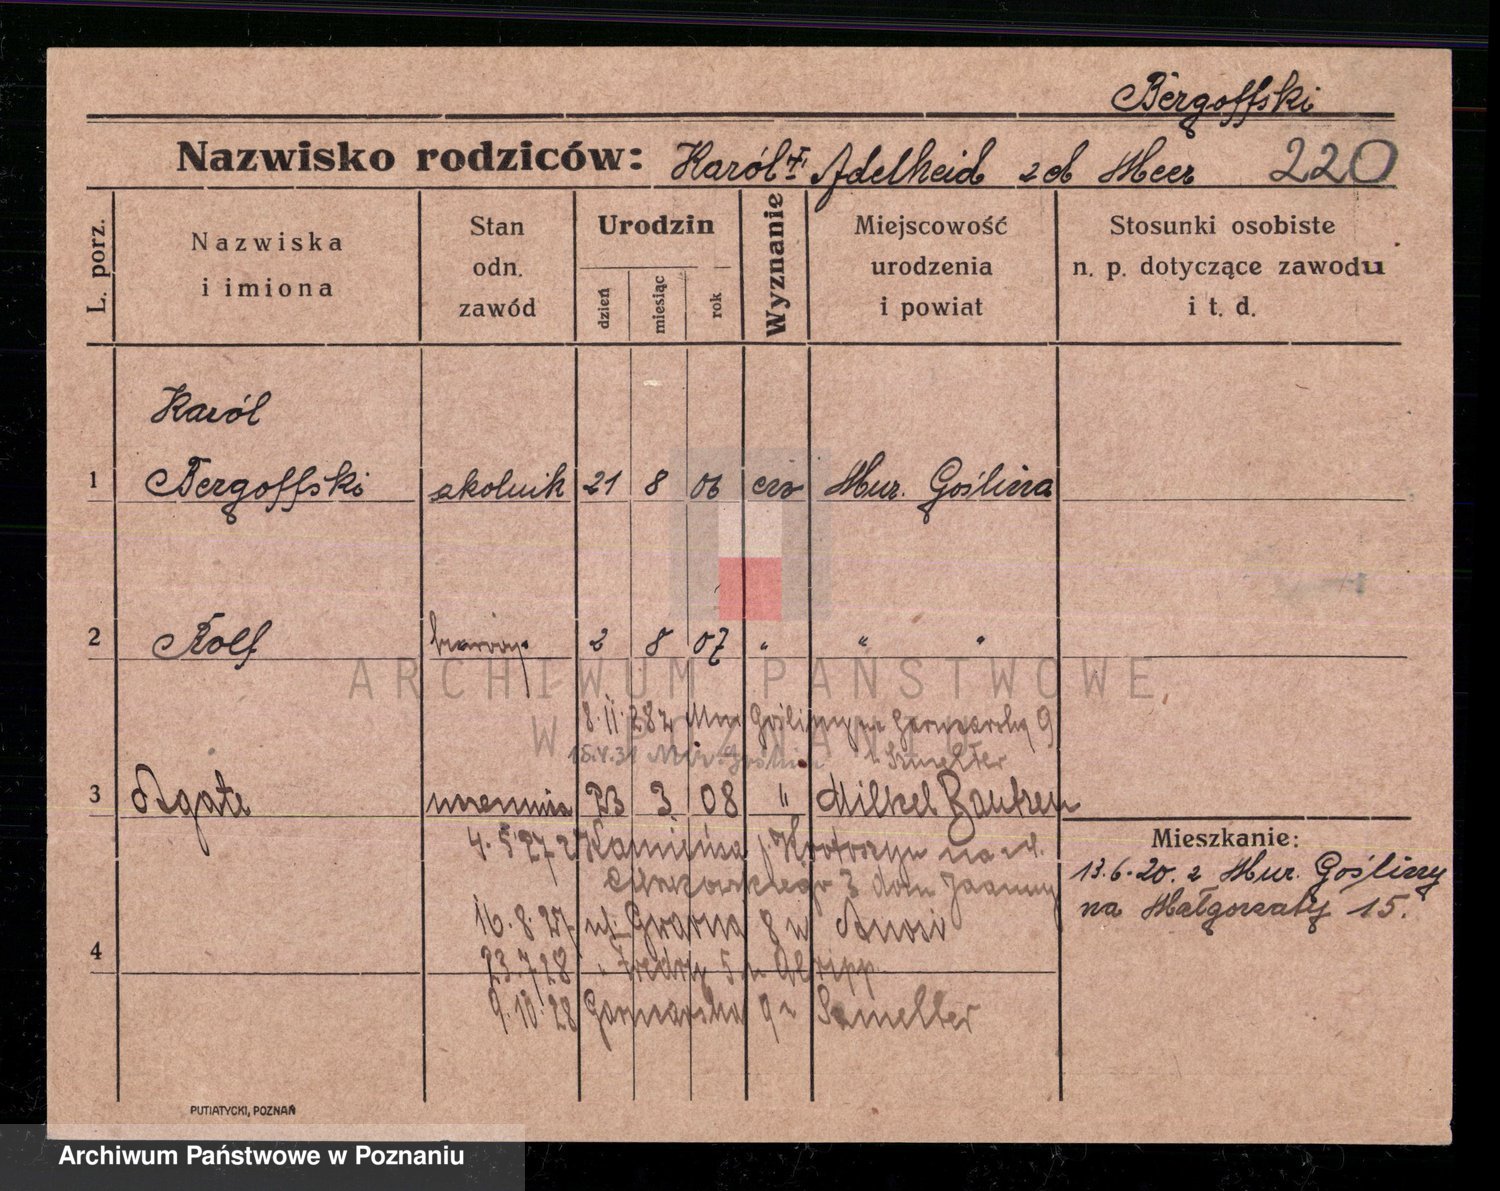 Bergoffski
Nazwisko rodziców: Karól † Adelheid zd Meer 220
L. porz.
Nazwiska i imiona
Stan odn. zawód
Urodzin
dzień
miesiąc
rok
Wyznanie
Miejscowość urodzenia i powiat
Stosunki osobiste n. p. dotyczące zawodu i t. d.
Karól
1 Bergoffski szkolnik 21 8 06 ew Mur. Goślina
2 Rolf 2 8 07 " " "
ARCHIWUM PAŃSTWOWE
W POZNANIU
8.11.28 z Mur Gośliny na Garncarską 9
15.V.31 Mur. Goślina Szmelter
3 Agate uczennica 23 3 08 " Milkel Bautzen
4.5.27 z Kamieńca p/Krotoszyn na ul.
3 dom Joanny
16.8.27 ul. Gwarna 8 u
4
23.7.28 " Fredry 5 u
9.10.28 Garncarska 9 u Szmelter
Mieszkanie:
13.6.20. z Mur. Gośliny
na Małgorzaty 15.
PUTIATYCKI, POZNAŃ
Archiwum Państwowe w Poznaniu